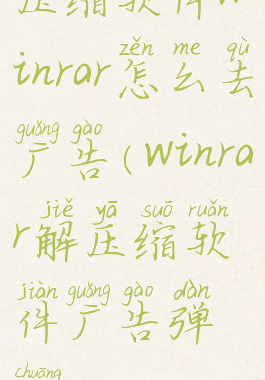 压缩软件w
zěn me qù
inrar怎么去
guǎng gào
广告(winra
jiě yā suō ruǎn
r解压缩软
jiàn guǎng gào dàn
件广告弹
chuāng